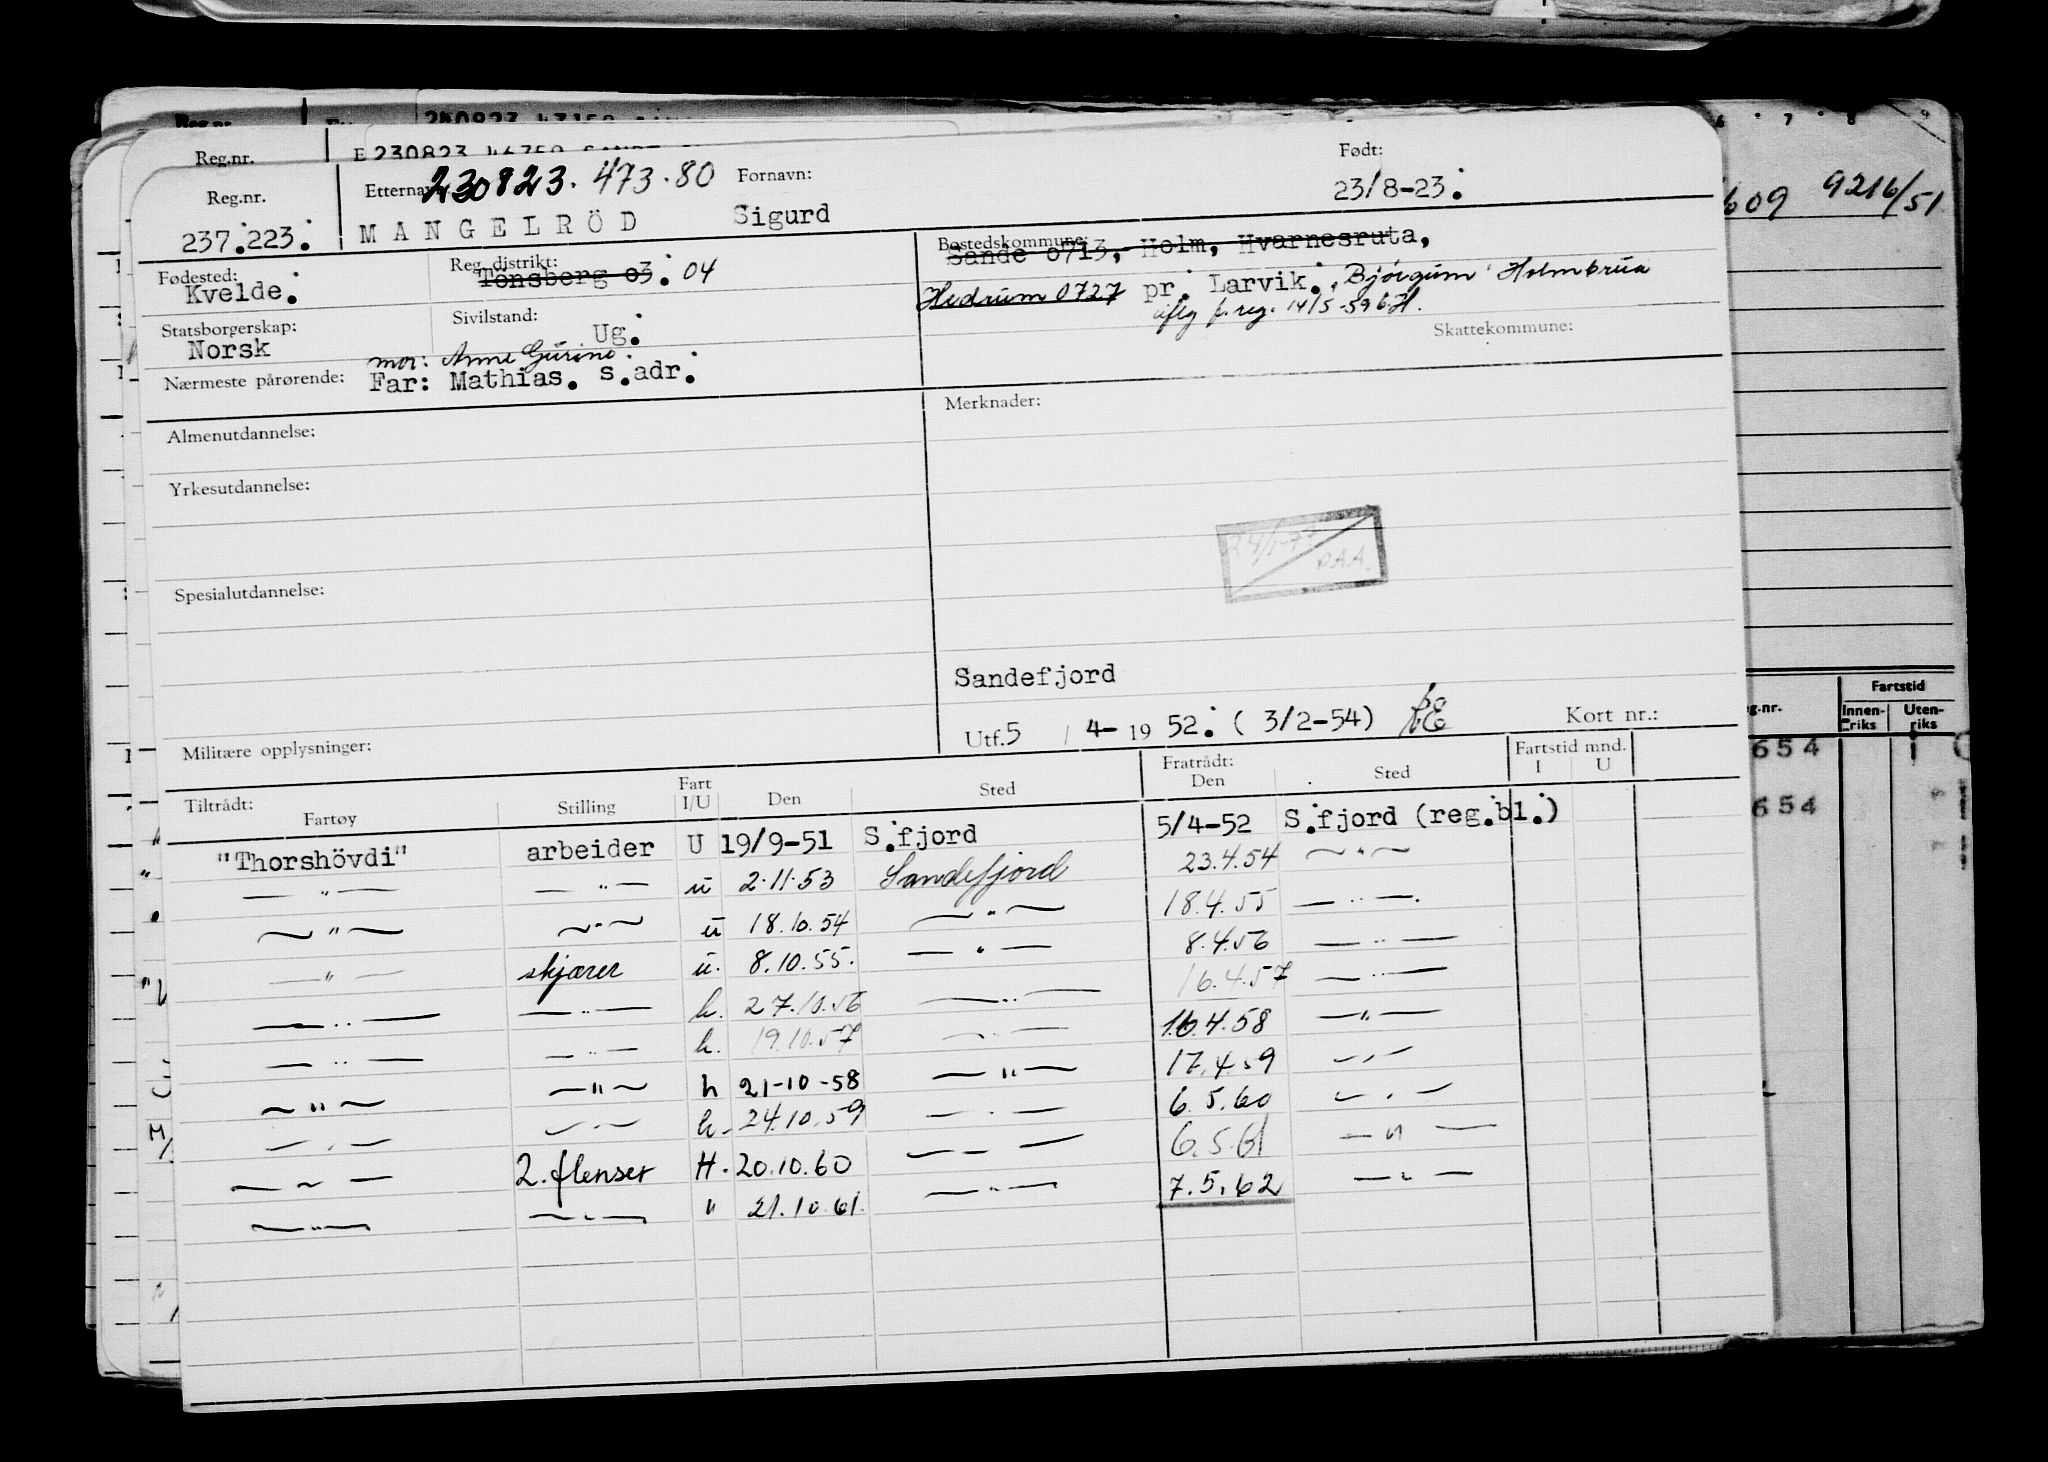 6 . 7 . 8 9
Reg.nr.
240823
609 9216/51
Reg.nr. E 230823 46759
Født:
Reg.nr. Etternavn 230823. 473.80 Fornavn: 23/8-23.
237.223. MANGELRÖD Sigurd
Fødested: Reg. distrikt: Bostedskommune:
Kvelde. Tönsberg 03. 04 Sande 0713, Holm, Hvarnesruta,
Hedrum 0727 pr. Larvik., Bjørgum Holmbrua
Statsborgerskap: Sivilstand: iflg f.reg. 14/5-59
Norsk Ug. Skattekommune:
mor: Anne Gurine.
Nærmeste pårørende: Far: Mathias. s.adr.
Almenutdannelse: Merknader:
Yrkesutdannelse:
Spesialutdannelse:
Sandefjord
Utf. 5 / 4- 19 52. ( 3/2-54) Kort nr.:
Militære opplysninger:
Tiltrådt: Fratrådt: Fartstid mnd.
Fartøy Stilling Fart I/U Den Sted Den Sted I U
"Thorshövdi" arbeider U 19/9-51 S.fjord 5/4-52 S.fjord (reg.bl.)
— " — — " — u 2.11.53 Sandefjord 23.4.54 — " —
— " — — " — u 18.10.54 — " — 18.4.55 — " —
— " — skjærer u. 8.10.55. — " — 8.4.56 — " —
— " — — " — h. 27.10.56 — " — 16.4.57 — " —
— " — — " — h. 19.10.57 — " — 16.4.58 — " —
— " — — " — h 21-10-58 — " — 17.4.59 — " —
— " — — " — h- 24.10.59 — " — 6.5.60 — " —
— " — 2. flenser H. 20.10.60 — " — 6.5.61 — " —
— " — — " — " 21.10.61. — " — 7.5.62 — " —
Fartstid
g.nr. Innen-riks Uten-riks
654
654